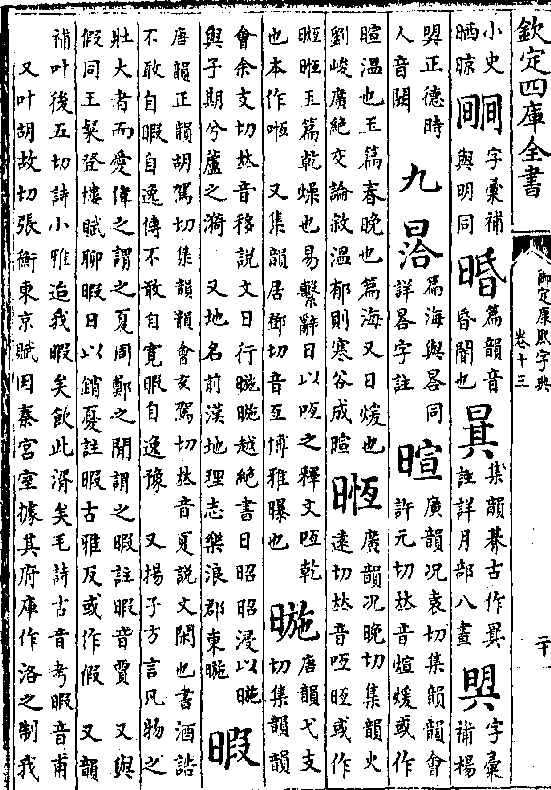 欽定四庫全書
御定康熙字典
卷十三
二十一
小史
晒晾
字彙補
與明同
篇韻音
昏闇也
集韻朞古作
註詳月部八畫
字彙
補楊
正德時
人音闕
九
篇海與晷同
詳晷字註
暄
廣韻况袁切集韻韻會
許元切𠀤音煊煖或作
暄溫也玉篇春晚也篇海又日煖也
劉峻廣絶交論敘溫郁則寒谷成暄
廣韻况晚切集韻火
遠切𠀤音咺晅或作
晅玉篇乾燥也易繫辭日以晅之釋文晅乾
也本作晅 又集韻居鄧切音亙博雅曝也
暆
唐韻弋支
切集韻韻
會余支切𠀤音移說文日行暆暆越絶書日昭昭浸以暆
與子期兮蘆之漪 又地名前漢地理志樂浪郡東暆
暇
唐韻正韻胡駕切集韻韻會亥駕切𠀤音夏說文閑也書酒誥
不敢自暇自逸傳不敢自寛暇自逸豫 又揚子方言凡物之
壯大者而愛偉之謂之夏周鄭之閒謂之暇註暇音賈 又與
假同王粲登樓賦聊暇日以銷憂註暇古雅反或作假 又韻
補叶後五切詩小雅迨我暇矣飲此湑矣毛詩古音考暇音甫
又叶胡故切張衡東京賦因秦宮室據其府庫作洛之制我